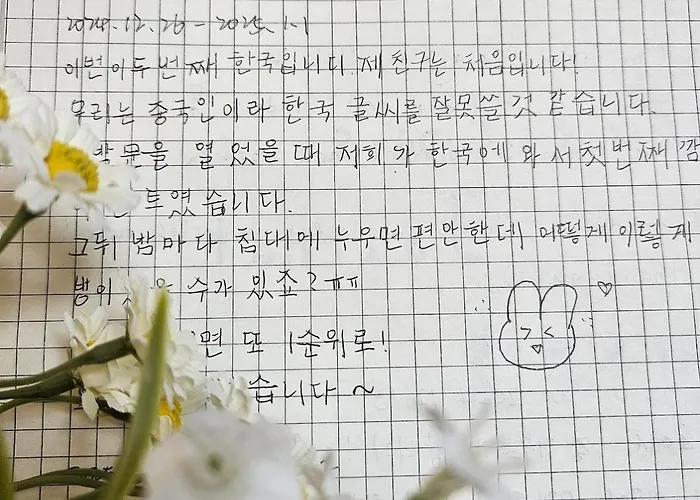 2024.12.26 - 2025.1.1
이번이 두번째 한국입니다. 제 친구는 처음입니다!
우리는 중국인이라 한국 글씨를 잘못쓸 것 같습니다.
방문을 열었을 때 저희가 한국에 와서 첫번째 깜
투였습니다.
그뒤 밤마다 침대에 누우면 편안한데, 어떻게 이렇게
수가 있죠? ㅠㅠ
면 또 1순위로!
습니다 ~